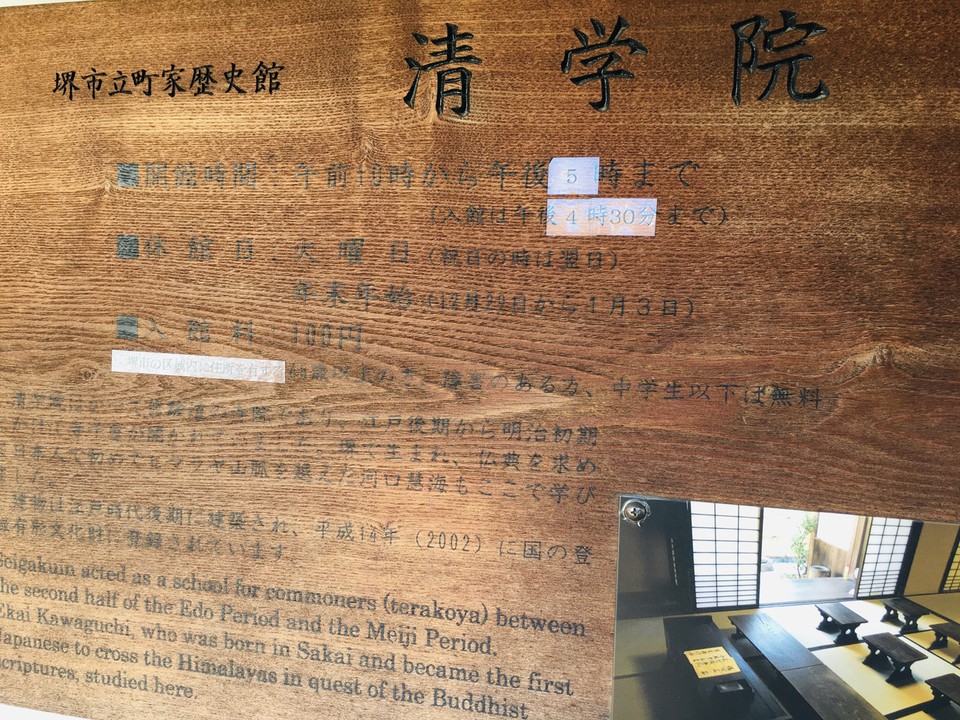 堺市立町家歴史館 清学院
■開館時間:午前10時から午後5時まで
(入館は午後4時30分まで)
■休館日:火曜日(祝日の時は翌日)
年末年始(12月29日から1月3日)
■入館料:100円
堺市の区域内に住所を有する 65歳以上の方、障害のある方、中学生以下は無料
清学院は 修験道の寺院であり、江戸後期から明治初期
には寺子屋が開かれていました。堺で生まれ、仏典を求め
日本人で初めてヒマラヤ山脈を越えた河口慧海もここで学び
ました。
建物は江戸時代後期に建築され、平成14年(2002)に国の登
録有形文化財に登録されています。
Seigakuin acted as a school for commoners (terakoya) between
the second half of the Edo Period and the Meiji Period.
Ekai Kawaguchi, who was born in Sakai and became the first
Japanese to cross the Himalayas in quest of the Buddhist
scriptures, studied here.